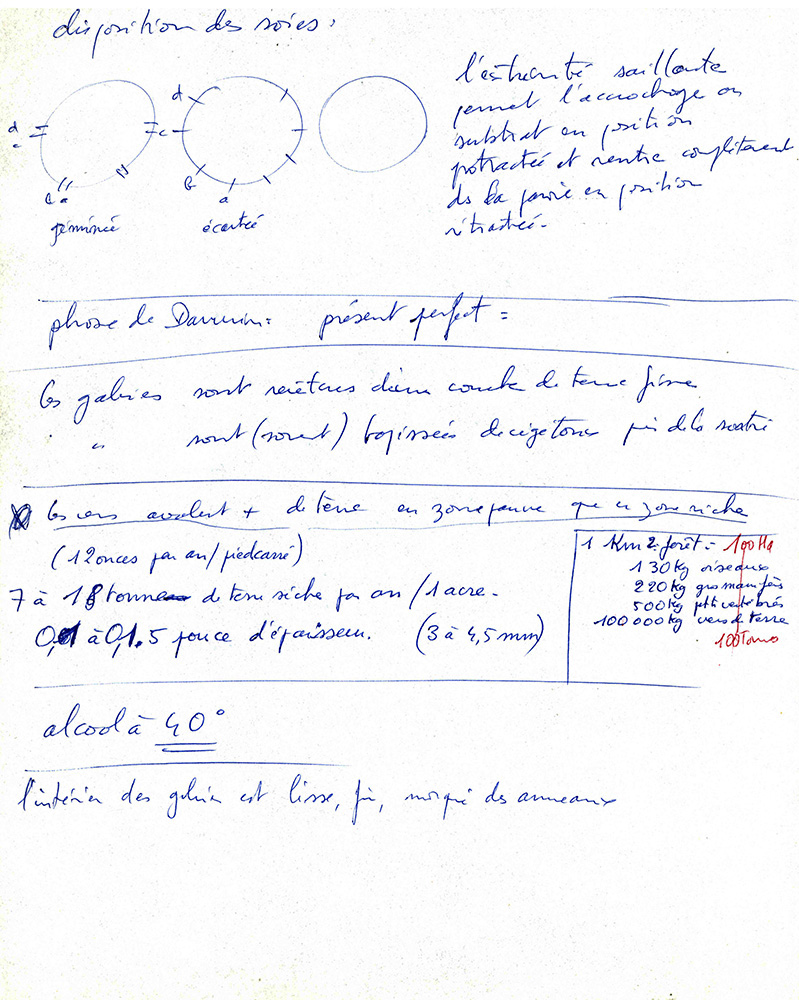 disposition des soies :
d
c
c
a
géminée
d
c
b
a
écartée
l'extrémité saillante
permet l'accrochage au
substrat en position
protractée et rentre complètement
ds la paroi en position
rétractée.
phrase de Darwin : présent perfect =
les galeries sont revêtues d'une couche de terre fine
" sont (sovent) tapissées de végétaux près de la sortie
les vers avalent + de terre en zone pauvre que en zone riche
(12 onces par an/pied carré)
7 à 18 tonnes de terre riche par an / 1 acre.
0,1 à 0,1.5 pouce d'épaisseur. (3 à 4,5 mm)
1 Km2 forêt = 100 Ha
130 kg oiseaux
220 kg gros mammifères
500 kg petits vertébrés
100 000 kg vers de terre
100 Tonnes
alcool à 40°
l'intérieur des galeries est lisse, fin, marqué des anneaux